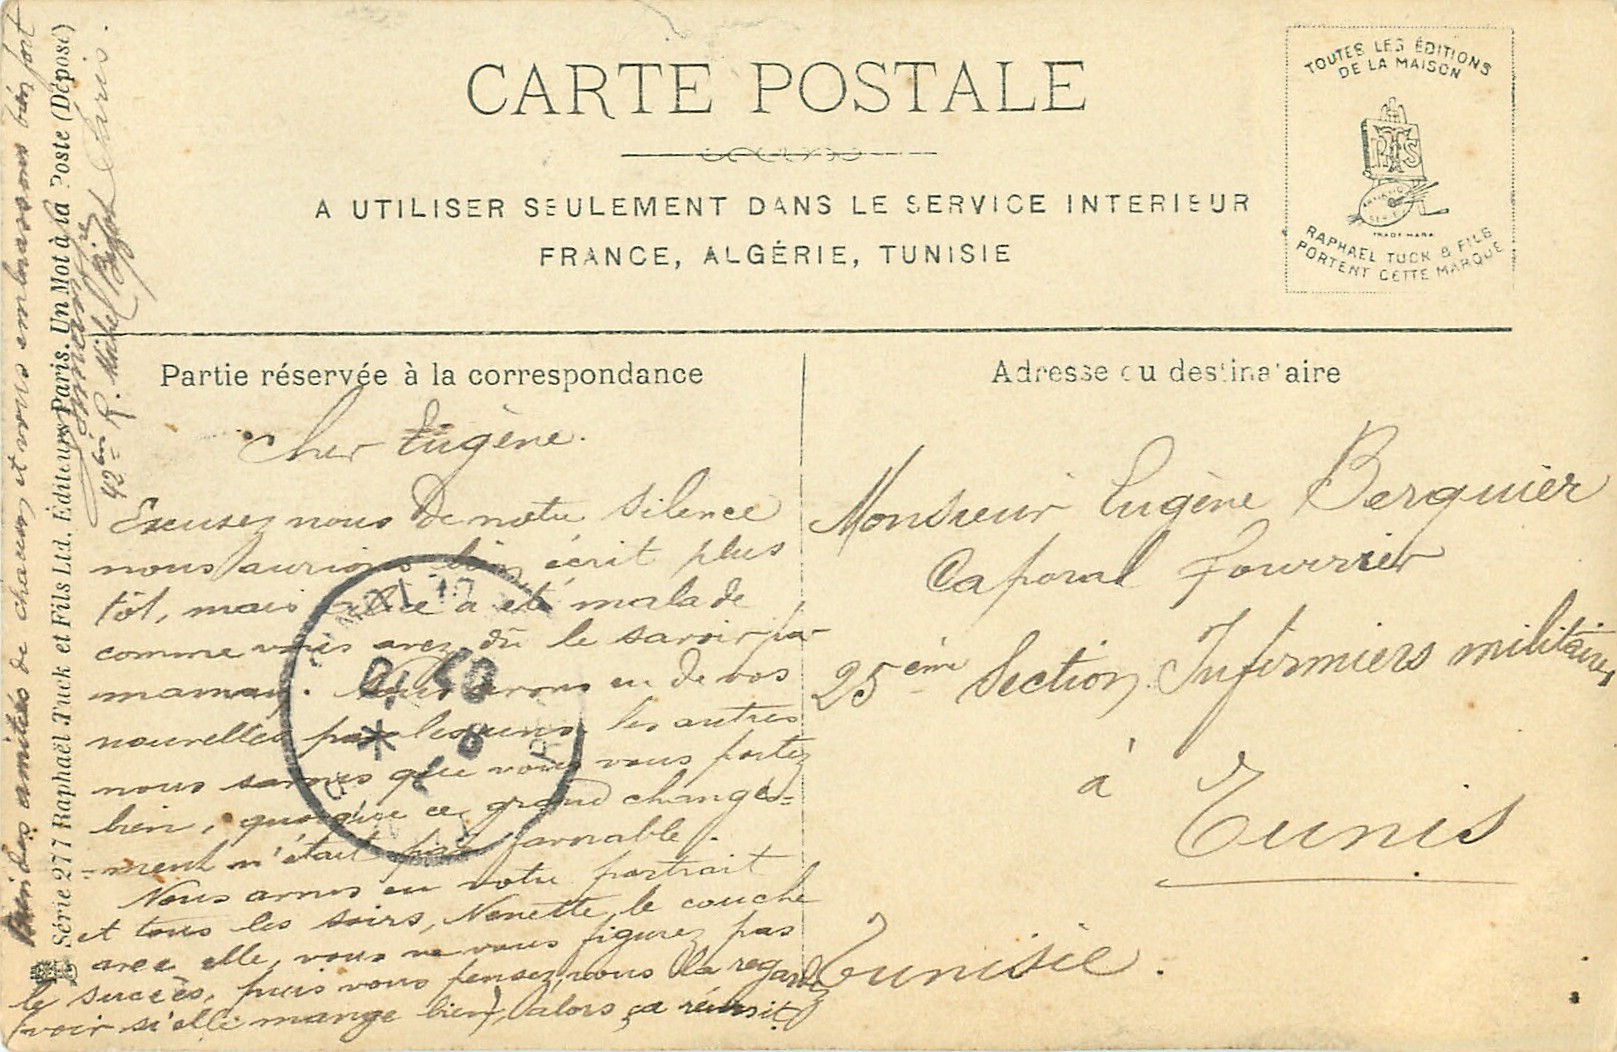 CARTE POSTALE
A UTILISER SEULEMENT DANS LE SERVICE INTERIEUR
FRANCE, ALGÉRIE, TUNISIE
TOUTES LES ÉDITIONS
DE LA MAISON
RAPHAEL TUCK & FILS
PORTENT CETTE MARQUE
Partie réservée à la correspondance
Cher Eugène.
Excusez nous de notre silence
nous aurions bien écrit plus
tôt, mais a été malade
comme vous avez dû le savoir par
maman. Nous avons eu de vos
nouvelles par les uns les autres
nous savons que vous vous portez
bien, quoique ce grand change-
-ment n'était pas favorable.
Nous avons eu votre portrait
et tous les soirs, Nénette, le couche
avec elle, vous ne vous figurez pas
le succès, puis vous pensez, nous la regardez
voir si elle mange bien, alors ça réussit.
Adresse du destinataire
Monsieur Eugène Berquier
Caporal fourrier
25ème Section Infirmiers militaires
à
Tunis
Tunisie.
Bien des amitiés de chacun et vous embrassons bien fort
Série 277 Raphaël Tuck et Fils Ltd. Éditeurs Paris. Un Mot à la Poste (Déposé)
42bis R. Michel Bizot Paris.